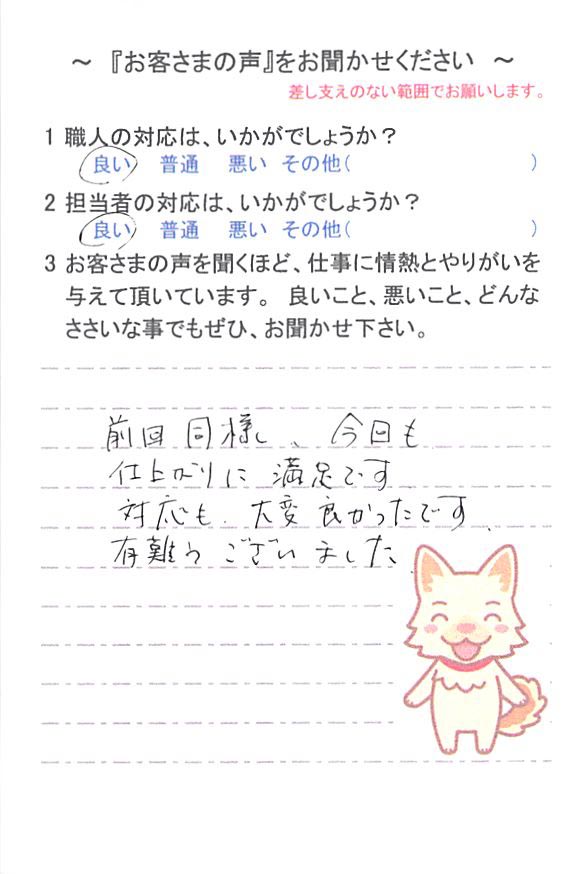 ～ 『お客さまの声』をお聞かせください ～
差し支えのない範囲でお願いします。
1 職人の対応は、いかがでしょうか？
良い 普通 悪い その他( )
2 担当者の対応は、いかがでしょうか？
良い 普通 悪い その他( )
3 お客さまの声を聞くほど、仕事に情熱とやりがいを
与えて頂いています。 良いこと、悪いこと、どんな
ささいな事でもぜひ、お聞かせ下さい。
前回同様し、今回も
仕上がりに満足です
対応も、大変良かったです、
有難うございました、